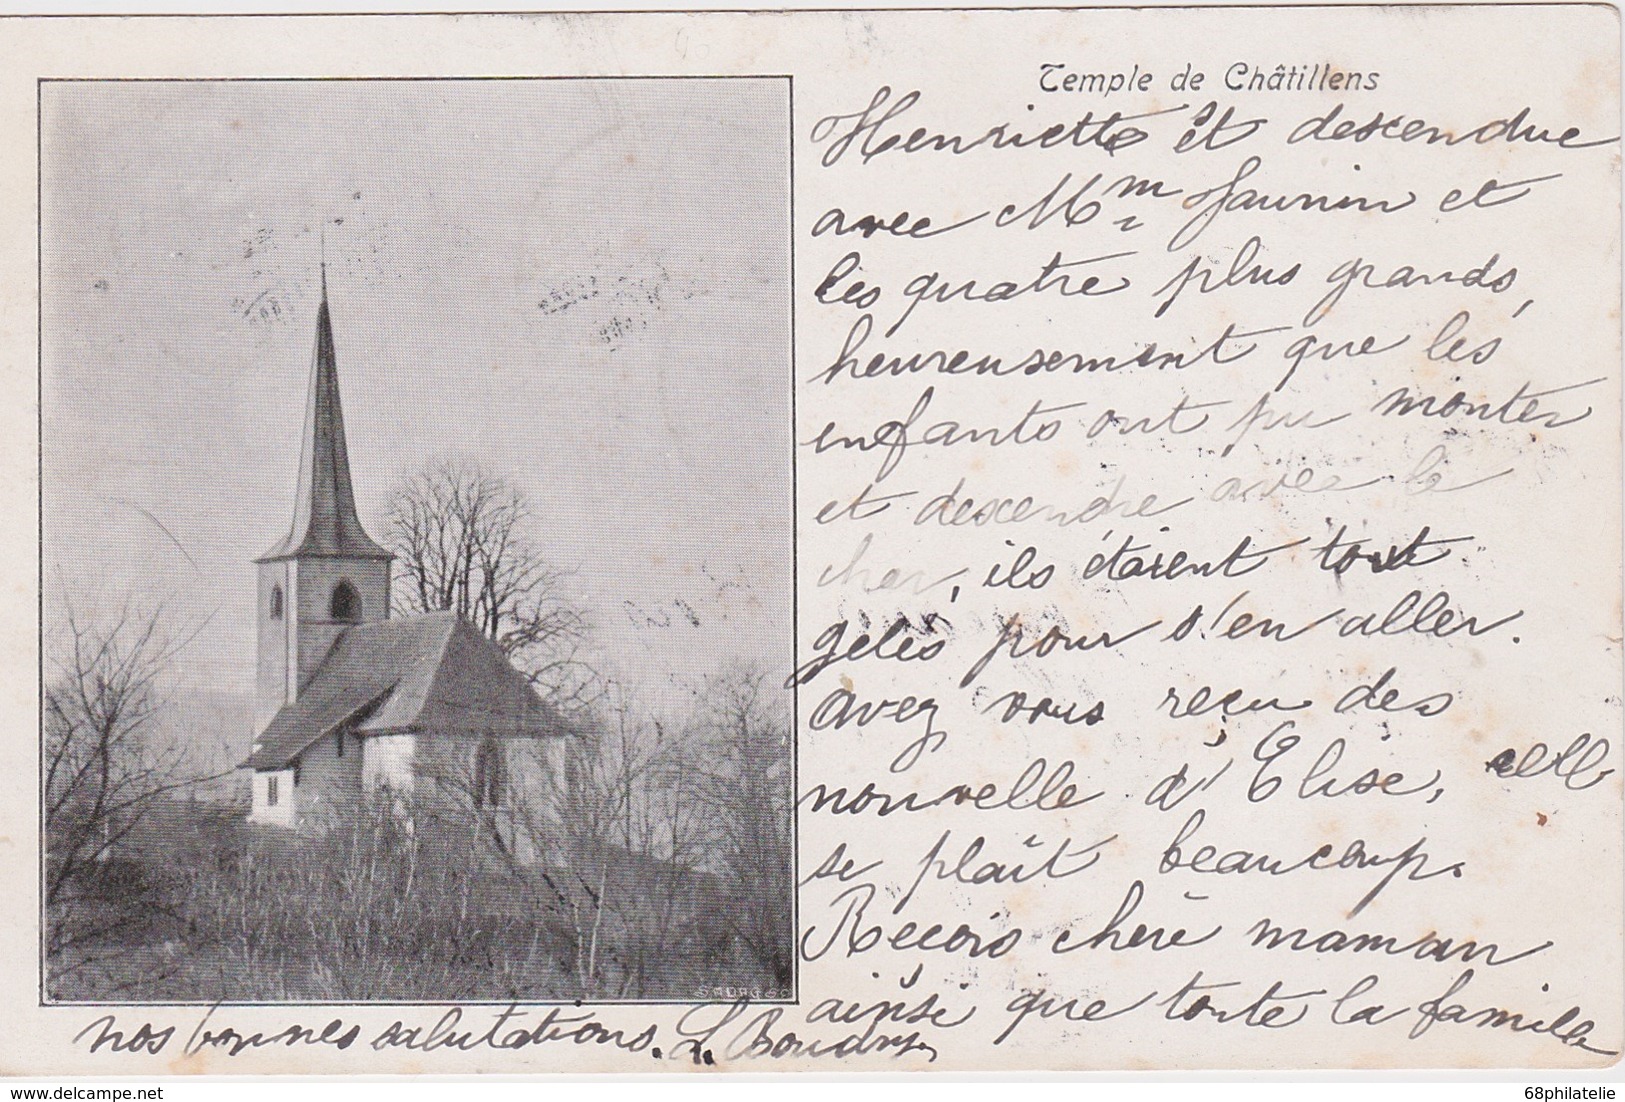 Temple de Châtillens
Henriette et descendue
avec Mm Jaunin et
les quatre plus grands,
heureusement que les
enfants ont pu monter
et descendre avec le
char, ils étaient tout
gelés pour s'en aller.
avez vous reçu des
nouvelle d'Elise, elle
se plaît beaucoup.
Reçois chère maman
ainsi que toute la famille
nos bonnes salutations. L.
www.delcampe.net
68philatelie